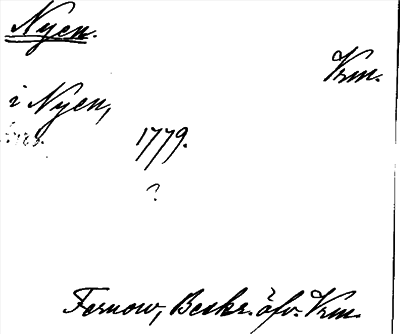 Nyen.
Vrm.
i Nyen,
1779.
?
Fernow, Beskr. öfv. Vrm.